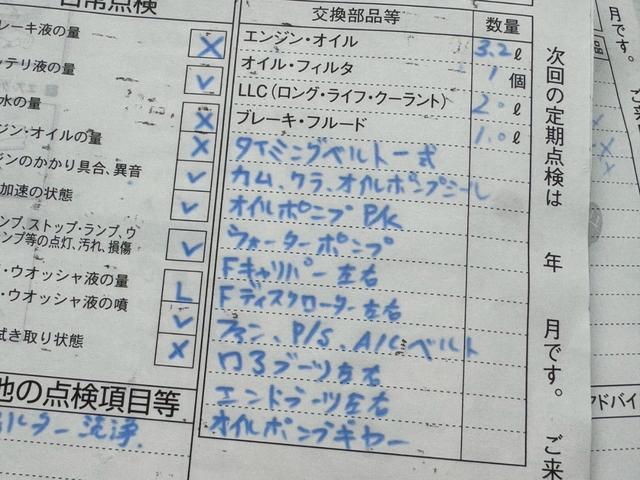 日常点検
レーキ液の量
ッテリ液の量
水の量
ジン・オイルの量
ジンのかかり具合、異音
加速の状態
ンプ、ストップ・ランプ、ウ
ンプ等の点灯、汚れ、損傷
・ウオッシャ液の量
・ウオッシャ液の噴
拭き取り状態
他の点検項目等
ルター洗浄
交換部品等 数量
エンジン・オイル 3.2 ℓ
オイル・フィルタ 1 個
LLC(ロング・ライフ・クーラント) 2.0 ℓ
ブレーキ・フルード 1.0 ℓ
タイミングベルト一式
カム、クラ、オイルポンプシール
オイルポンプ P/K
ウォーターポンプ
Fキャリパー左右
Fディスクローター左右
ファン、P/S、A/C ベルト
ロアブーツ左右
エンドブーツ左右
オイルポンプギヤー
次回の定期点検は 年 月です。 ご来
月です。
アドバイ